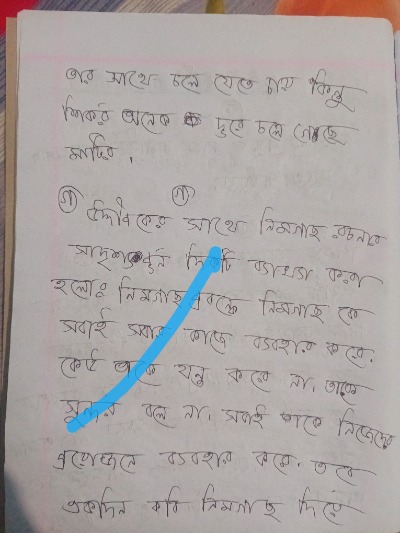 তার সাথে চলে যেতে চায় কিন্তু
শিকর অনেক দূরে চলে গেছে
মাটির।
গ) গ)
উদ্দীপকের সাথে নিমগাছ রচনার
সাদৃশ্যপূর্ন ব্যাখ্যা করা
হলোঃ নিমগাছ প্রবন্ধে নিমগাছ কে
সবাই সবার কাজে ব্যবহার করে।
কেউ তাকে যত্ন করে না, তাকে
সুন্দর বলে না, সবাই তাকে নিজেদের
প্রয়োজনে ব্যবহার করে। তবে
একদিন কবি নিমগাছ